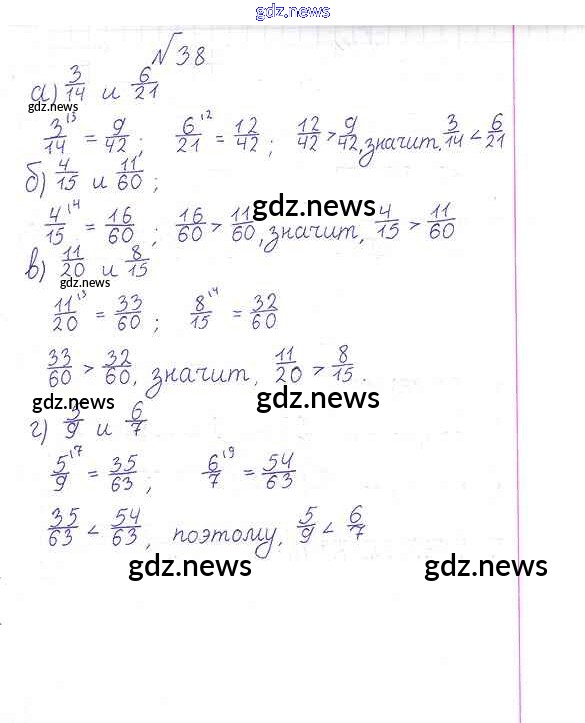 gdz.news
√38
а) 3/14 и 6/21
gdz.news
3/14 ¹³ = 9/42; 6/21 ¹² = 12/42; 12/42 > 9/42, значит, 3/14 < 6/21
б) 4/15 и 11/60;
4/15 ¹⁴ = 16/60; 16/60 > 11/60, значит, 4/15 > 11/60
gdz.news
в) 11/20 и 8/15
gdz.news
11/20 ¹³ = 33/60; 8/15 ¹⁴ = 32/60
33/60 > 32/60, значит, 11/20 > 8/15.
gdz.news gdz.news
г) 3/9 и 6/7
5/9 ¹⁷ = 35/63; 6/7 ¹⁹ = 54/63
35/63 < 54/63, поэтому, 5/9 < 6/7
gdz.news gdz.news